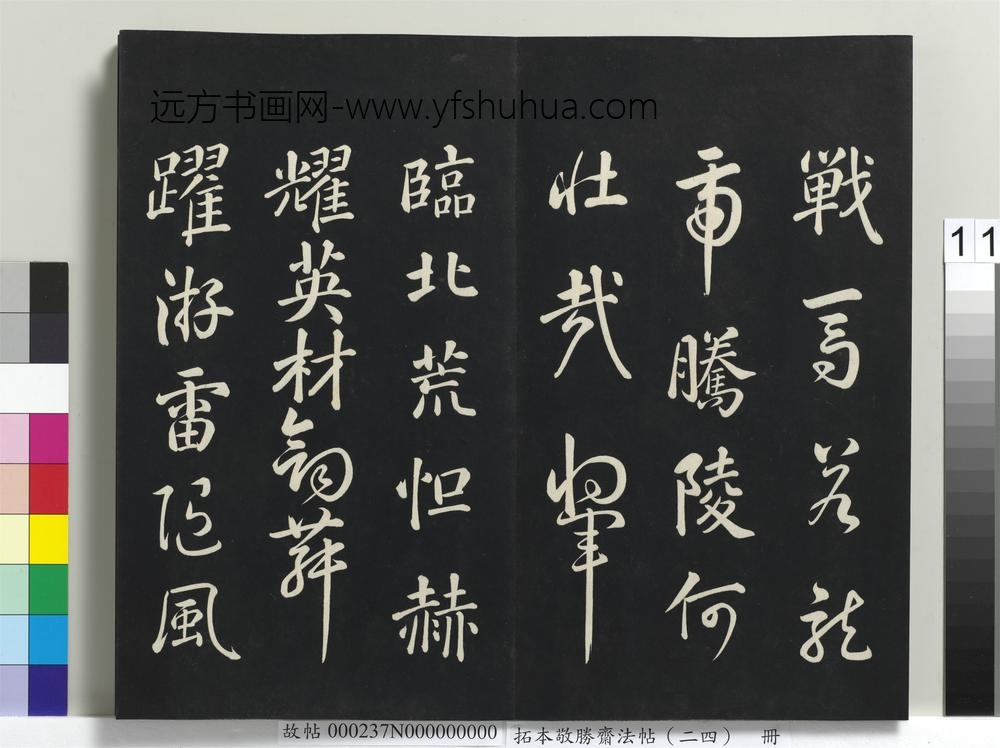 远方书画网-www.yfshuhua.com
戰馬若龍
虎騰陵何
壯哉將軍
臨北荒怛赫
耀英材劍舞
躍游雷随風
故帖 000237N000000000
拓本敬勝齋法帖（二四） 冊
11